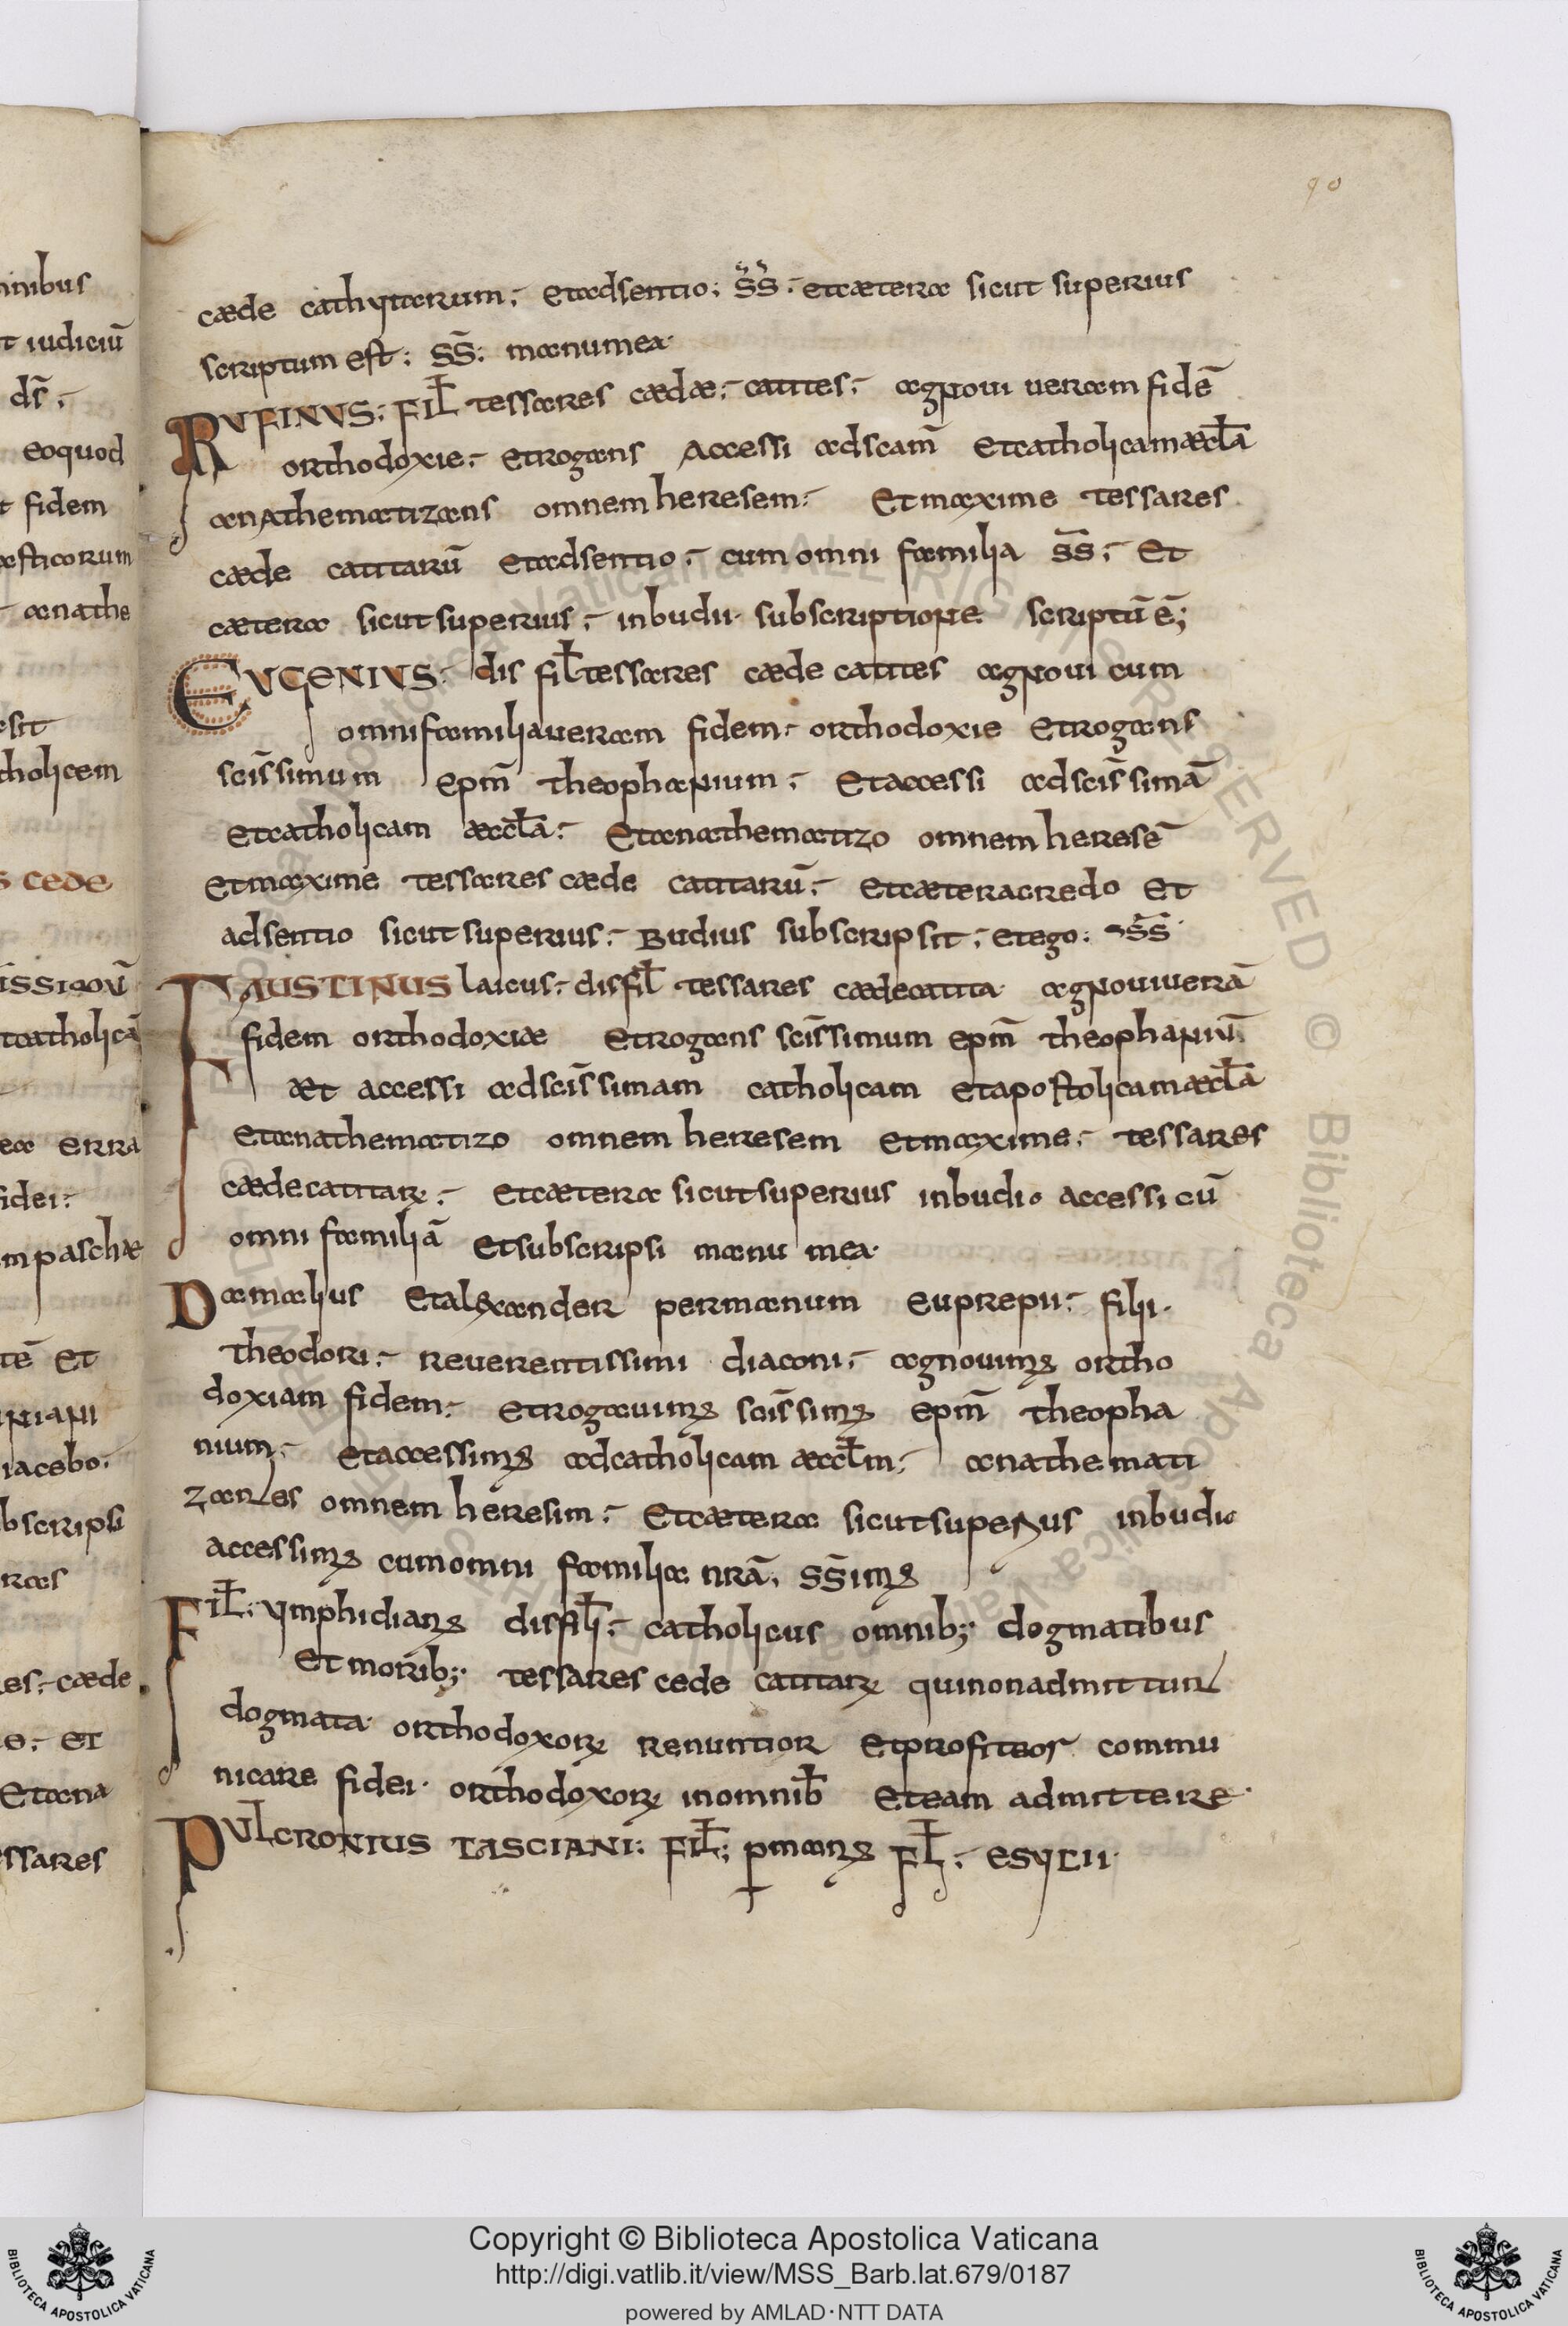 90
cæde cathytarum; et adsentio; s̄s̄ et cætera sicut superius
scriptum est; s̄s̄; manu mea
RUFINUS; FIŁ tessares cædæ; catites; agnovi ueram fidē
orthodoxie; et rogans accessi ad scam̄ et catholicam æccła
anathematizans omnem heresem; et maxime tessares
cæde catitarū et adsentio; cum omni familia s̄s̄; et
cætera sicut superius; in budii subscriptione scriptū ē;
EUGENIUS; dis fił tessares cæde catites agnoui cum
omni familia ueram fidem orthodoxie et rogans
scis̄simum epm̄ theophanium; et accessi ad scis̄simā
et catholicam æccła; et anathematizo omnem heresē
et maxime tessares cæde catitarū; et cætera credo et
adsentio sicut superius; Budius subscripsit; et ego; s̄s̄
FAUSTINUS laicus; dis fił tessares cæde catita agnoui uerā
fidem orthodoxiæ et rogans scis̄simum epm̄ theophaniū
æt accessi ad scis̄simam catholicam et apostolicam æccła
et anathematizo omnem heresem et maxime; tessares
cæde catitaꝝ; et cætera sicut superius in budio accessi cū
omni familiā et subscripsi manu mea
Damalius et alexander per manum euprepii; filii
theodori; reuerentissimi diaconi; agnouimꝰ ortho
doxiam fidem; et rogauimꝰ scis̄simꝰ epm̄ theopha
nium; et accessimꝰ ad catholicam æccłm; anathemati
zantes omnem heresim; et cætera sicut superius in budio
accessimꝰ cum omni familia nrā; s̄s̄imꝰ
FIŁ; ymphidianꝰ dis fiłi; catholicus omnib; dogmatibus
et morib; tessares cede catitaꝝ qui non admittunt
dogmata orthodoxoꝝ renuntior et profiteor commu
nicare fidei orthodoxoꝝ in omnib̄ et eam admittere
PULCRONIUS TASCIANI; FIŁ; ꝑ manꝰ FŁ; esycii
Copyright © Biblioteca Apostolica Vaticana
http://digi.vatlib.it/view/MSS_Barb.lat.679/0187
powered by AMLAD·NTT DATA